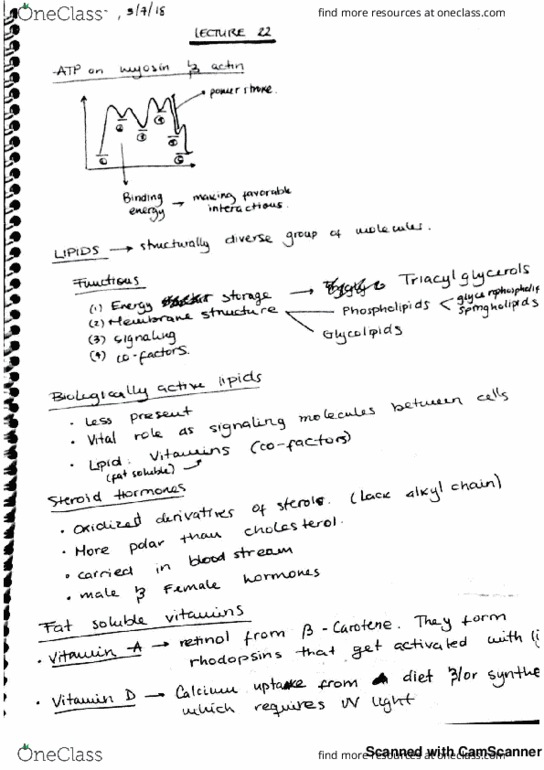 OneClass
find more resources at oneclass.com
, 3/7/18
LECTURE 22
-ATP on myosin & actin
power stroke.
Binding energy → making favorable interactions.
LIPIDS → structurally diverse group of molecules.
Functions
(1) Energy storage → Triacylglycerols
(2) Membrane structure
Phospholipids
Glycolipids
(3) signaling
(4) co-factors.
Biologically active lipids
• Less present
• Vital role as signaling molecules between cells
• Lipid: Vitamins (co-factors)
(fat soluble)
Steroid Hormones
• Oxidized derivatives of sterols. (Lack alkyl chain)
• More polar than cholesterol.
• carried in blood stream
• male & Female hormones
Fat soluble vitamins
• Vitamin A → retinol from β-Carotene. They form
rhodopsins that get activated with
• Vitamin D → Calcium uptake from diet &/or synthe
which requires UV light
Scanned with CamScanner
OneClass
find more